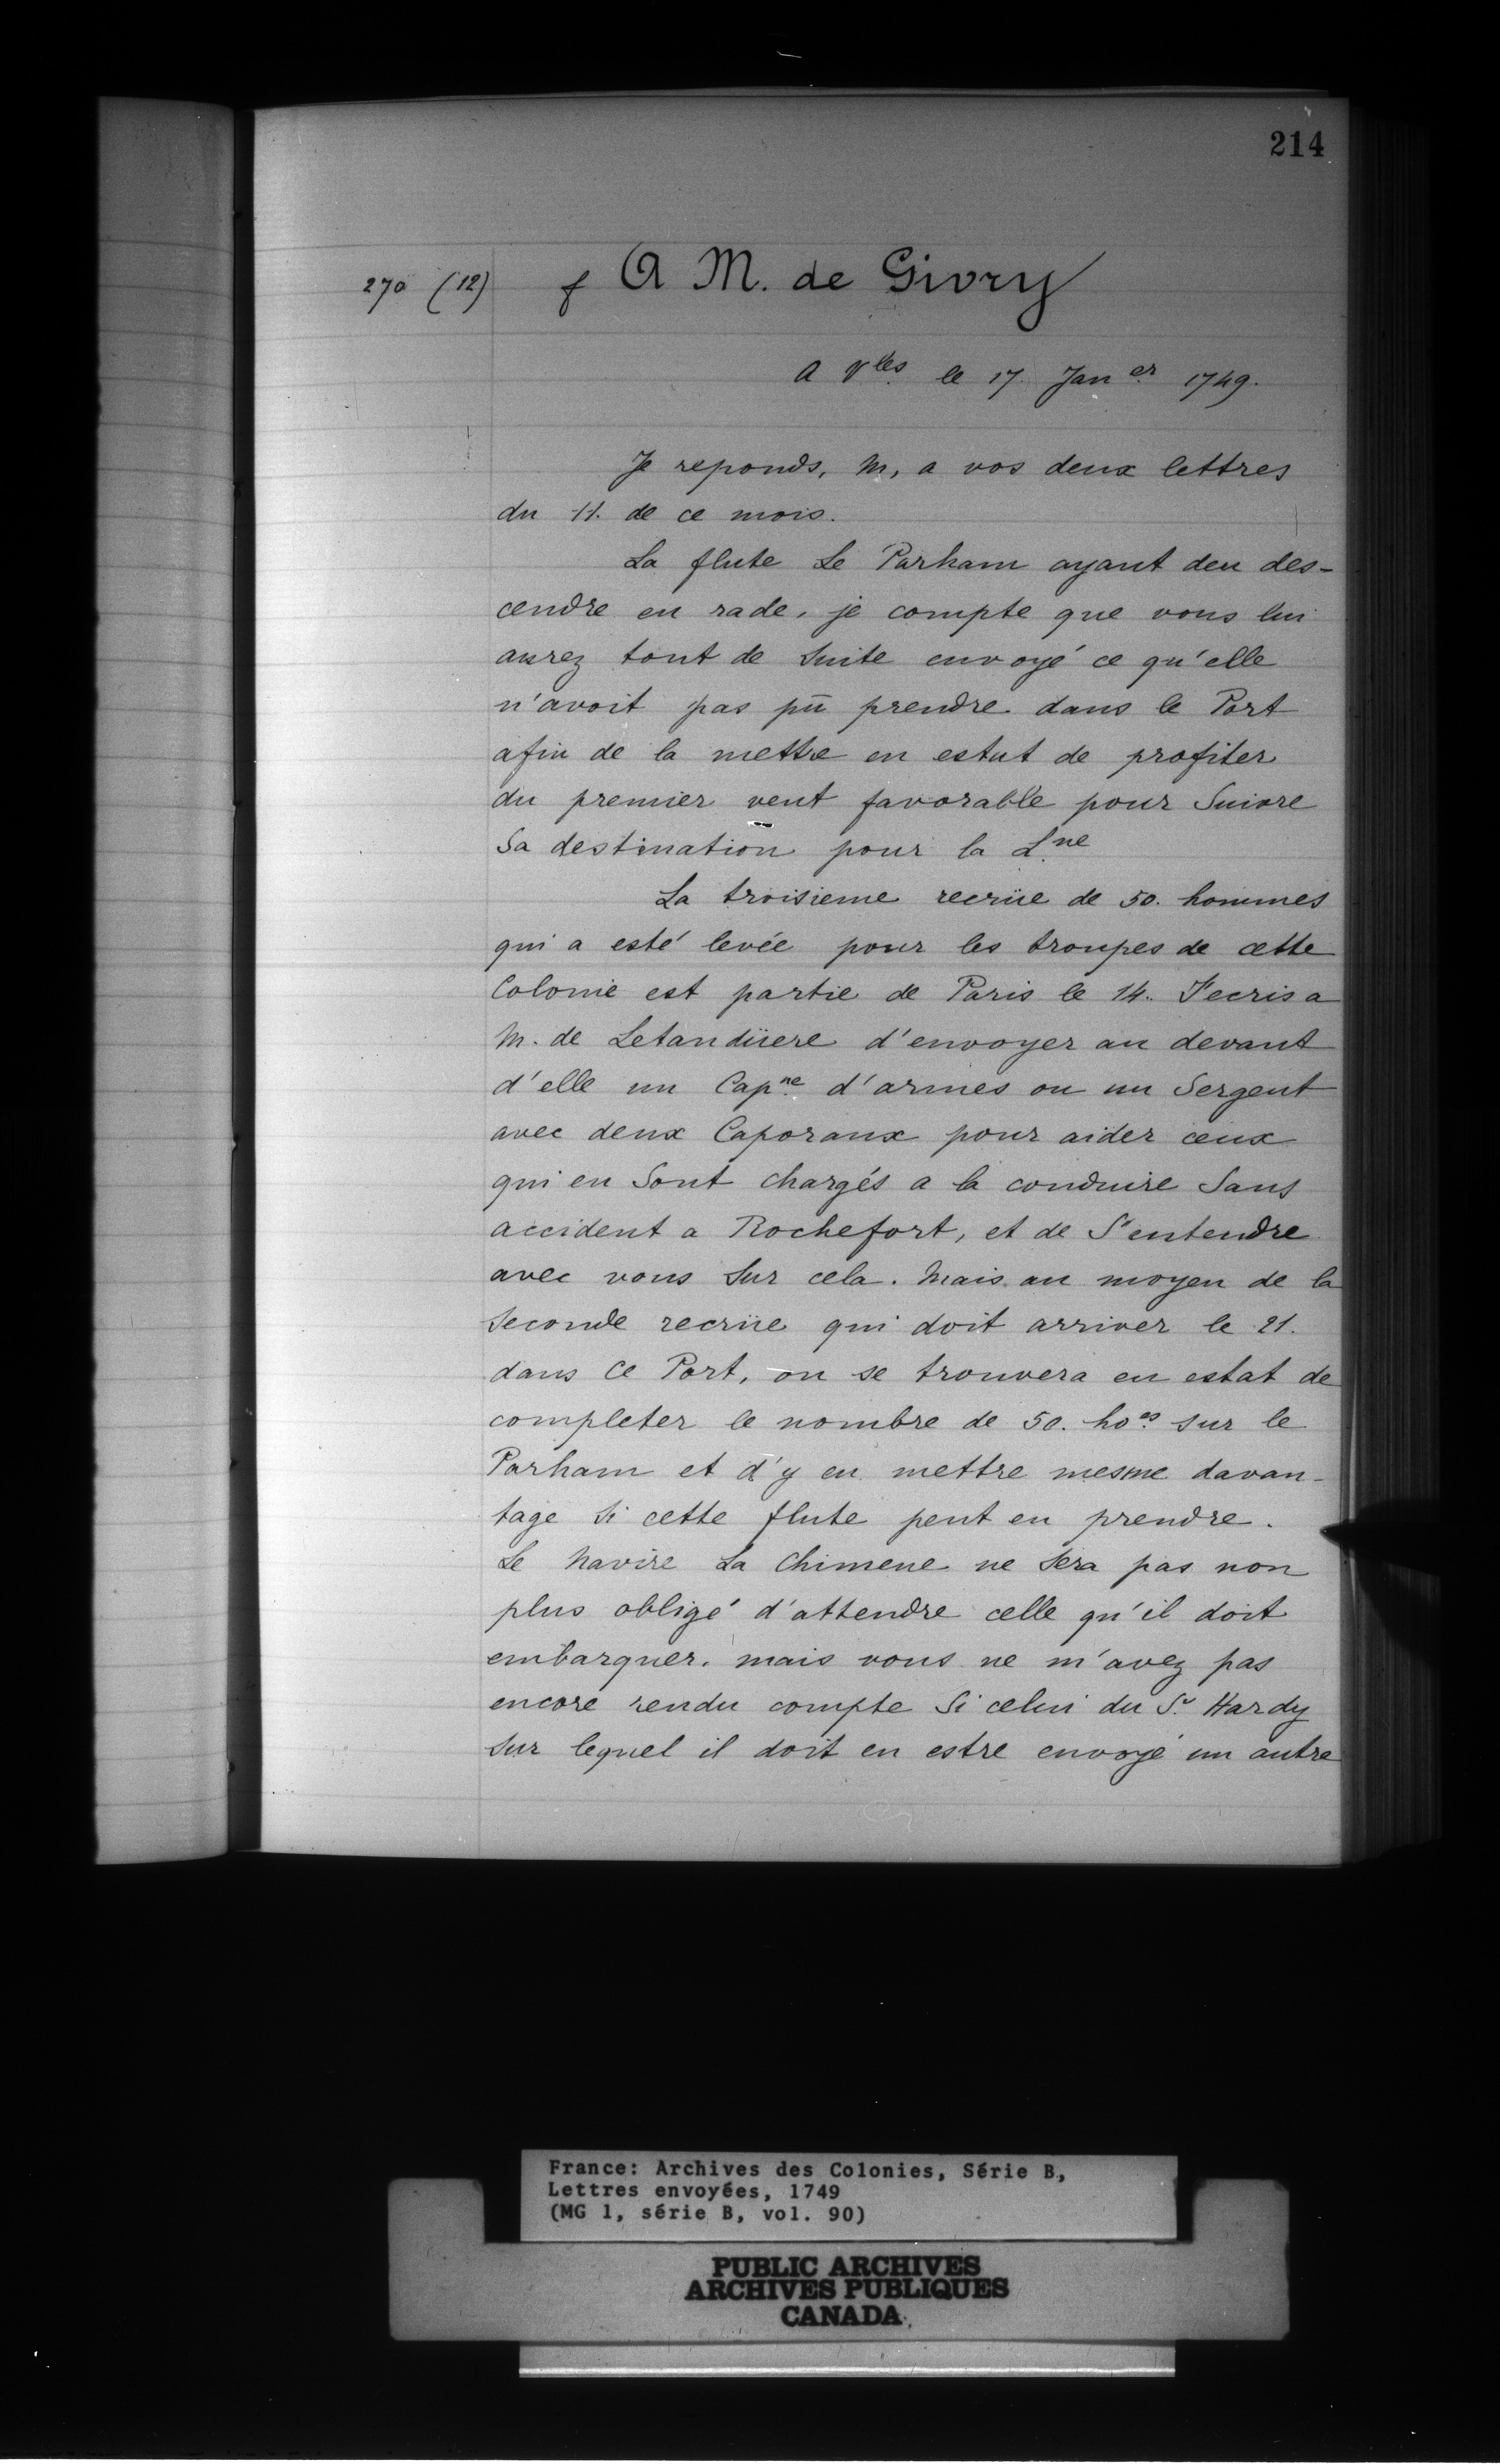 214
270 (12) f A M. de Givry
A Vles le 17 Janer 1749.
Je reponds, M, a vos deux lettres
du 11. de ce mois.
La flute Le Parham ayant deu des-
cendre en rade, je compte que vous lui
aurez tout de suite envoyé ce qu'elle
n'avoit pas pû prendre dans le Port
afin de la mettre en estat de profiter
du premier vent favorable pour Suivre
Sa destination pour la Lne
La troisieme recrüe de 50. hommes
qui a esté levée pour les troupes de cette
Colonie est partie de Paris le 14. J'ecris a
M. de Letandüere d'envoyer au devant
d'elle un Capne d'armes ou un Sergent
avec deux Caporaux pour aider ceux
qui en Sont chargés a la conduire Sans
accident a Rochefort, et de S'entendre
avec vous Sur cela. Mais au moyen de la
Seconde recrüe qui doit arriver le 21.
dans ce Port, on se trouvera en estat de
completer le nombre de 50. hoes sur le
Parham et d'y en mettre mesme davan-
tage Si cette flute peut en prendre.
Le Navire La Chimene ne Sera pas non
plus obligé d'attendre celle qu'il doit
embarquer. mais vous ne m'avez pas
encore rendu compte Si celui du Sr Hardy
Sur lequel il doit en estre envoyé un autre
France: Archives des Colonies, Série B,
Lettres envoyées, 1749
(MG 1, série B, vol. 90)
PUBLIC ARCHIVES
ARCHIVES PUBLIQUES
CANADA